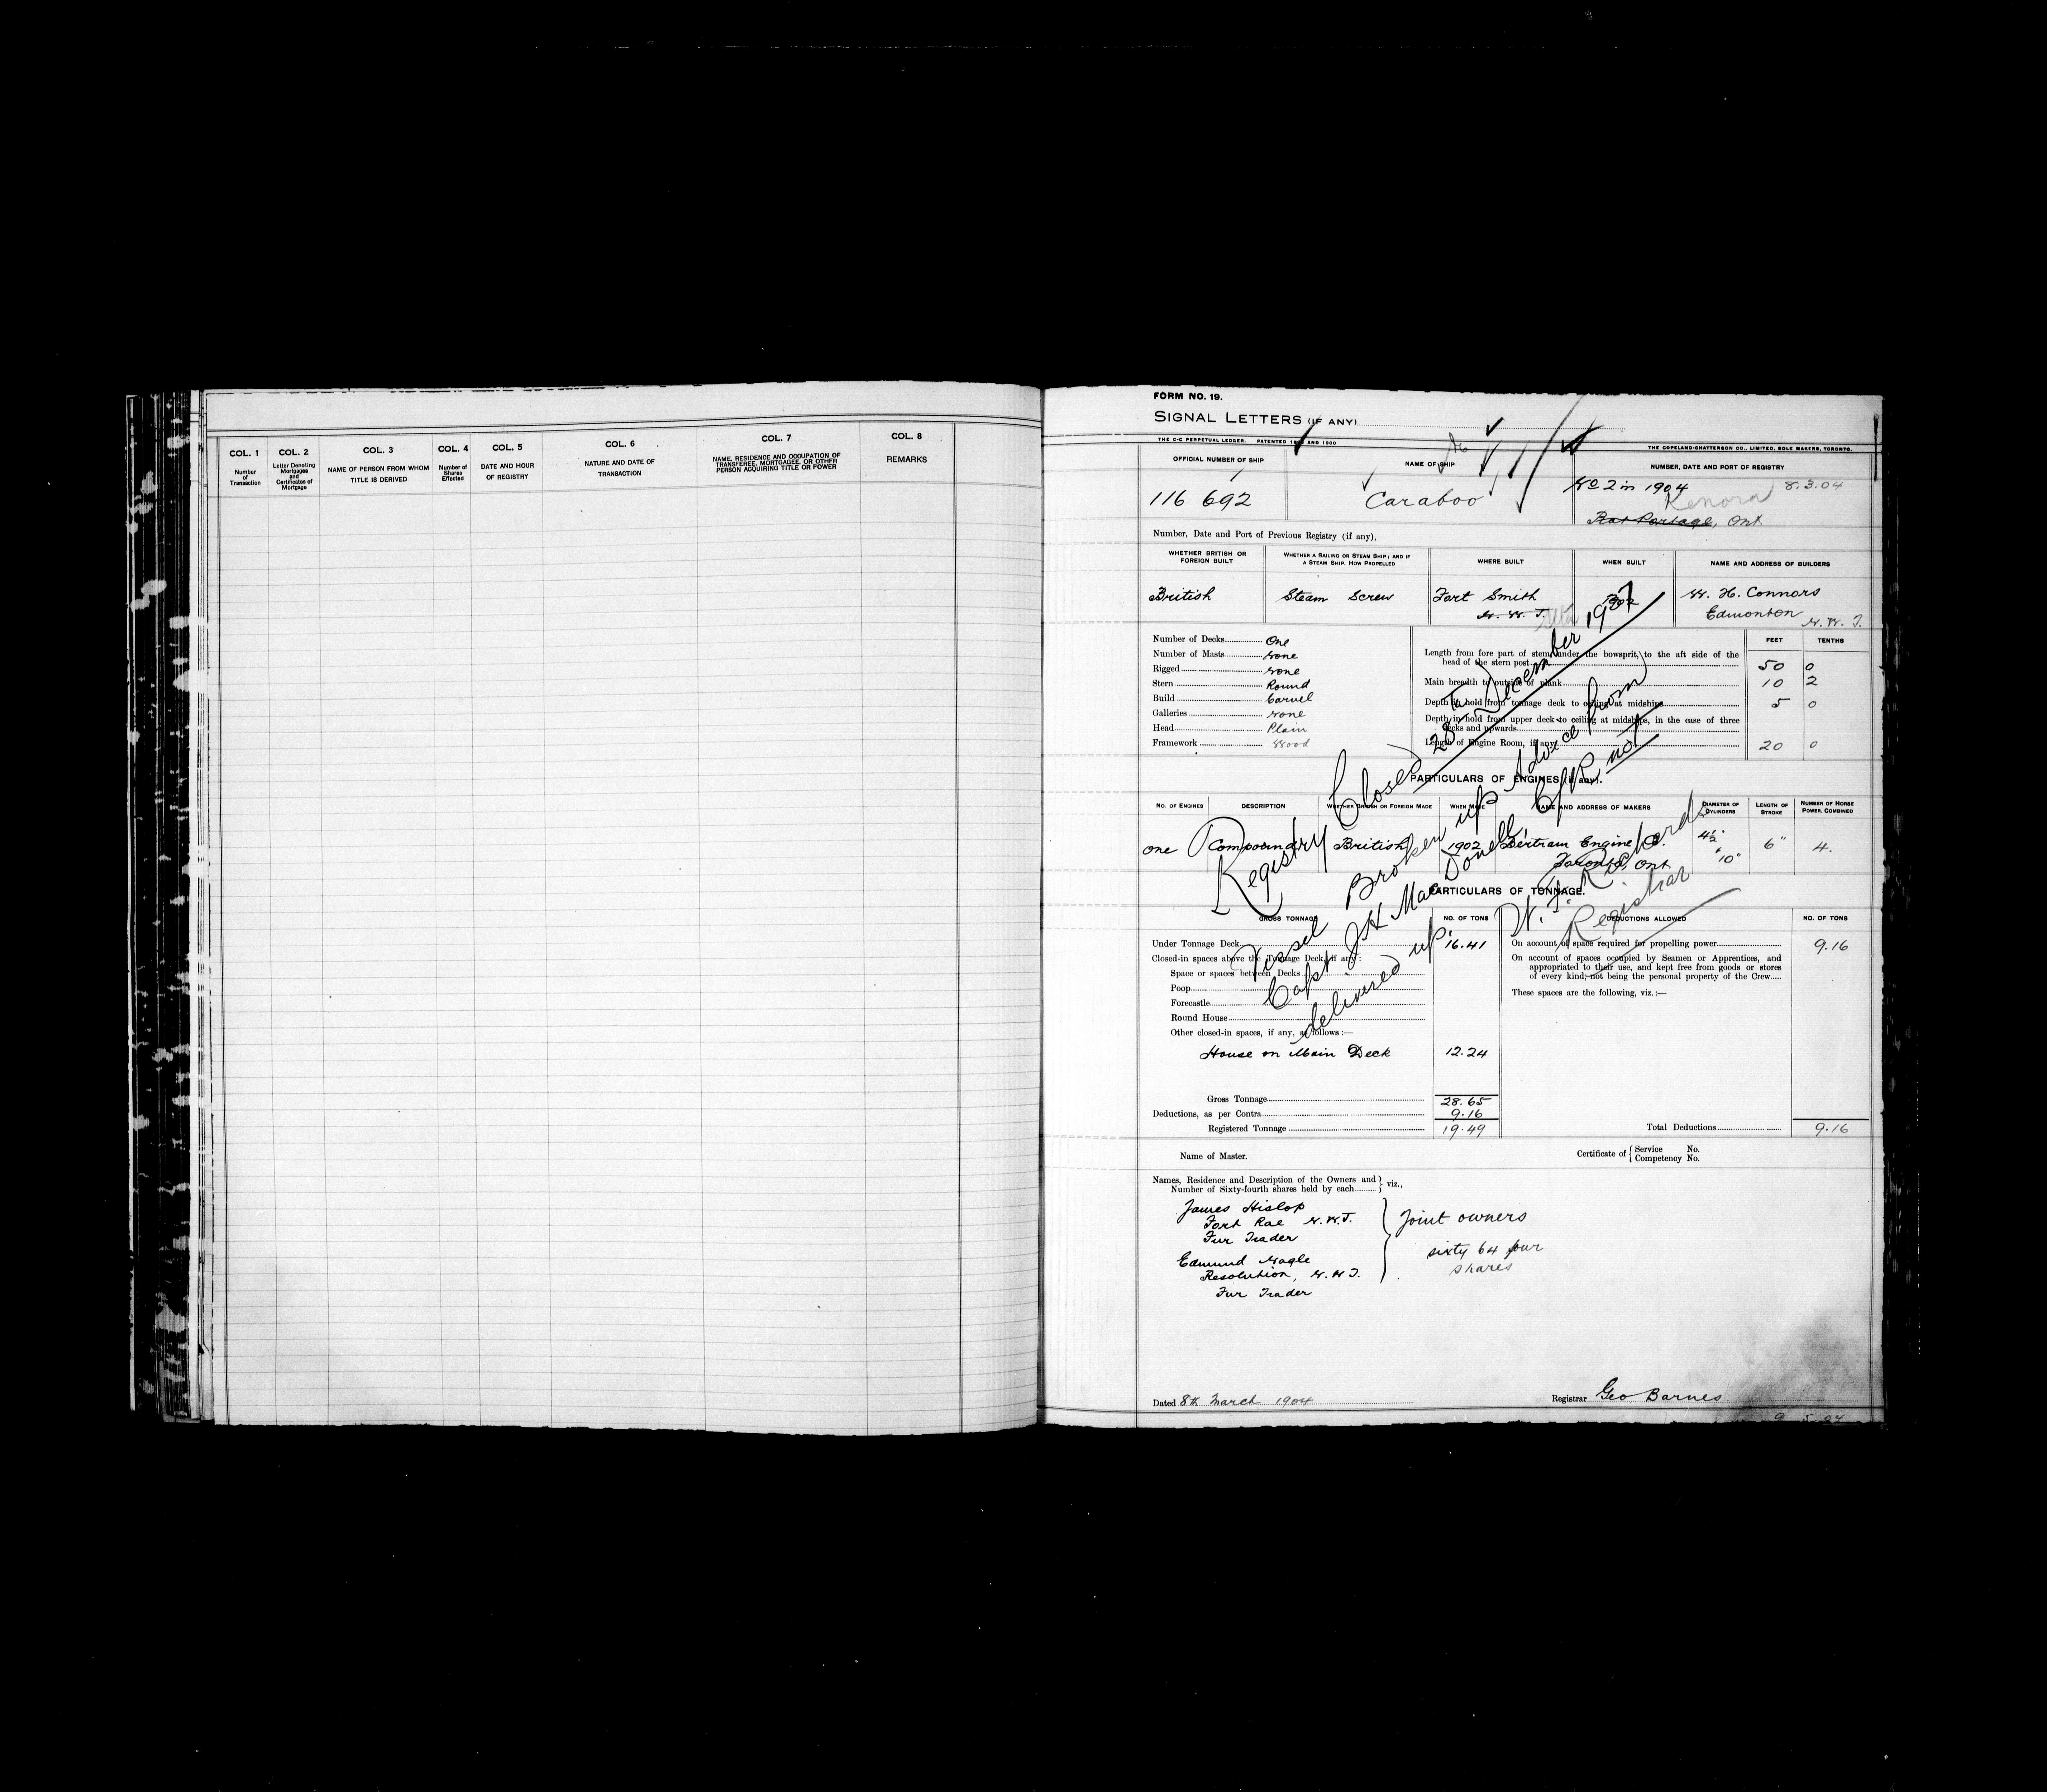 COL. 1
Number
of
Transaction
COL. 2
Letter Denoting
Mortgages
and
Certificates of
Mortgage
COL. 3
NAME OF PERSON FROM WHOM
TITLE IS DERIVED
COL. 4
Number of
Shares
Effected
COL. 5
DATE AND HOUR
OF REGISTRY
COL. 6
NATURE AND DATE OF
TRANSACTION
COL. 7
NAME, RESIDENCE AND OCCUPATION OF
TRANSFEREE, MORTGAGEE, OR OTHER
PERSON ACQUIRING TITLE OR POWER
COL. 8
REMARKS
FORM NO. 19.
SIGNAL LETTERS (IF ANY)
THE C-C PERPETUAL LEDGER. PATENTED AND 1900
THE COPELAND-CHATTERSON CO., LIMITED, SOLE MAKERS, TORONTO.
OFFICIAL NUMBER OF SHIP
NAME OF SHIP
NUMBER, DATE AND PORT OF REGISTRY
116 692
Caraboo
No 2 in 1904 8.3.04
Kenora
Rat Portage, Ont
Number, Date and Port of Previous Registry (if any),
WHETHER BRITISH OR
FOREIGN BUILT
WHETHER A SAILING OR STEAM SHIP; AND IF
A STEAM SHIP, HOW PROPELLED
WHERE BUILT
WHEN BUILT
NAME AND ADDRESS OF BUILDERS
British
Steam Screw
Fort Smith
N. W. T. Alta
1902
W. H. Connors
Edmonton N. W. T.
Number of Decks One
Number of Masts None
Rigged None
Stern Round
Build Carvel
Galleries None
Head Plain
Framework Wood
FEET TENTHS
Length from fore part of stem, under the bowsprit, to the aft side of the
head of the stern post 50 0
Main breadth to outside of plank 10 2
Depth in hold from tonnage deck to ceiling at midships 5 0
Depth in hold from upper deck to ceiling at midships, in the case of three
decks and upwards
Length of Engine Room, if any 20 0
PARTICULARS OF ENGINES (if any).
NO. OF ENGINES
DESCRIPTION
WHETHER BRITISH OR FOREIGN MADE
WHEN MADE
NAME AND ADDRESS OF MAKERS
DIAMETER OF
CYLINDERS
LENGTH OF
STROKE
NUMBER OF HORSE
POWER, COMBINED
one Compound British 1902 Bertram Engine Co. 4½" + 10" 6" 4.
Toronto, Ont
Registry Closed 28th December 1907
Vessel Broken up Advice from
Capt JH MacDonell, C/R not
delivered up.
W. F. Richards
Registrar
PARTICULARS OF TONNAGE.
GROSS TONNAGE
NO. OF TONS
DEDUCTIONS ALLOWED
NO. OF TONS
Under Tonnage Deck 16.41
Closed-in spaces above the Tonnage Deck, if any:
Space or spaces between Decks
Poop
Forecastle
Round House
Other closed-in spaces, if any, as follows:—
House on Main Deck 12.24
Gross Tonnage 28.65
Deductions, as per Contra 9.16
Registered Tonnage 19.49
On account of space required for propelling power 9.16
On account of spaces occupied by Seamen or Apprentices, and
appropriated to their use, and kept free from goods or stores
of every kind, not being the personal property of the Crew
These spaces are the following, viz.:—
Total Deductions 9.16
Name of Master.
Certificate of { Service No.
Competency No.
Names, Residence and Description of the Owners and
Number of Sixty-fourth shares held by each } viz.,
James Hislop
Fort Rae N.W.T.
Fur Trader
Edmund Nagle
Resolution, N.W.T.
Fur Trader
Joint owners
sixty 64 four
shares
Dated 8th March 1904
Registrar Geo Barnes